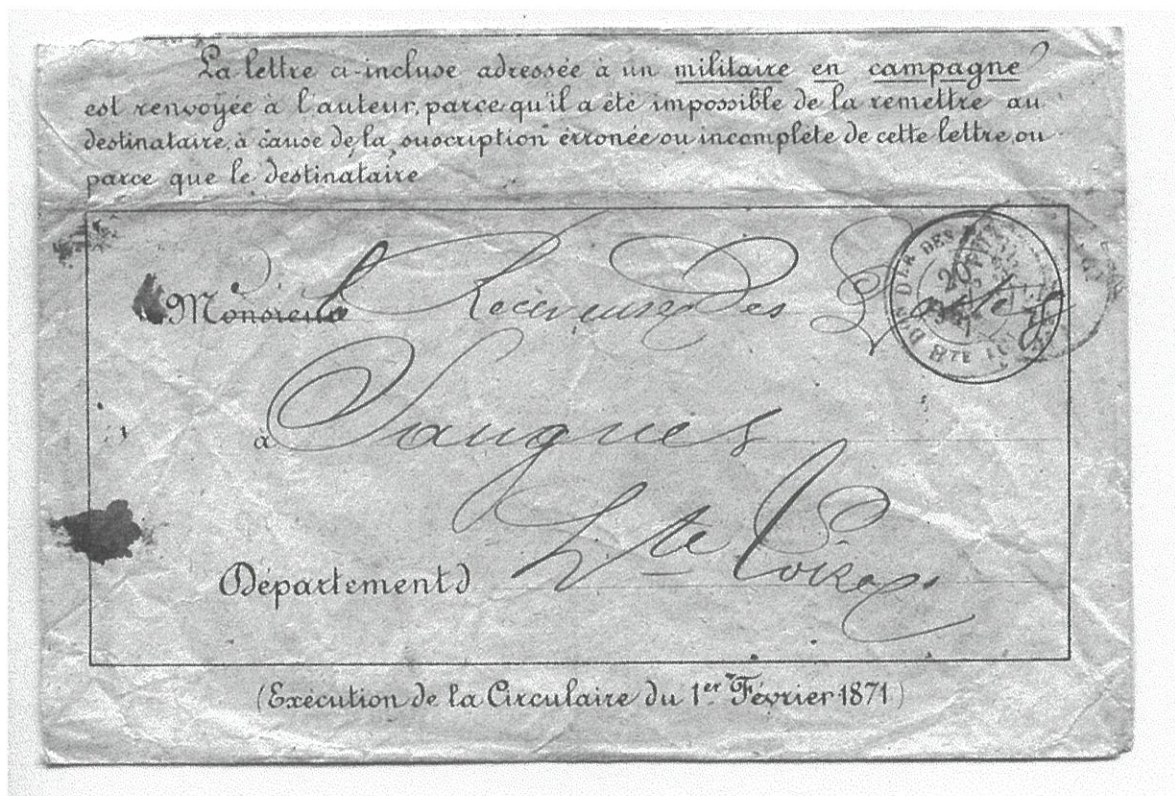 La lettre ci-incluse adressée à un militaire en campagne
est renvoyée à l'auteur, parce qu'il a été impossible de la remettre au
destinataire, à cause de la suscription érronée ou incomplète de cette lettre, ou
parce que le destinataire
Monsieur la Receveuse des Postes
à Saugues
Département d Hte Loire
DON DER DES
20
(Exécution de la Circulaire du 1er Février 1871)